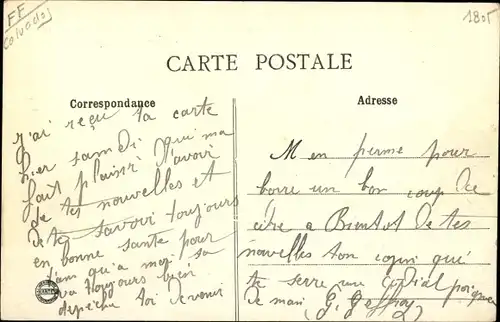 FF
Calvados
1805
CARTE POSTALE
Correspondance
Adresse
j'ai reçu ta carte
hier samedi qui ma
fait plaisir d'avoir
de tes nouvelles et
de te savoir toujours
en bonne sante pour
qu'a moi sa
va toujours bien
depeche toi de venir
M en perme pour
boire un bon coup de
cidre a Bientot de tes
nouvelles ton copin qui
te serre une cordial
de main G.